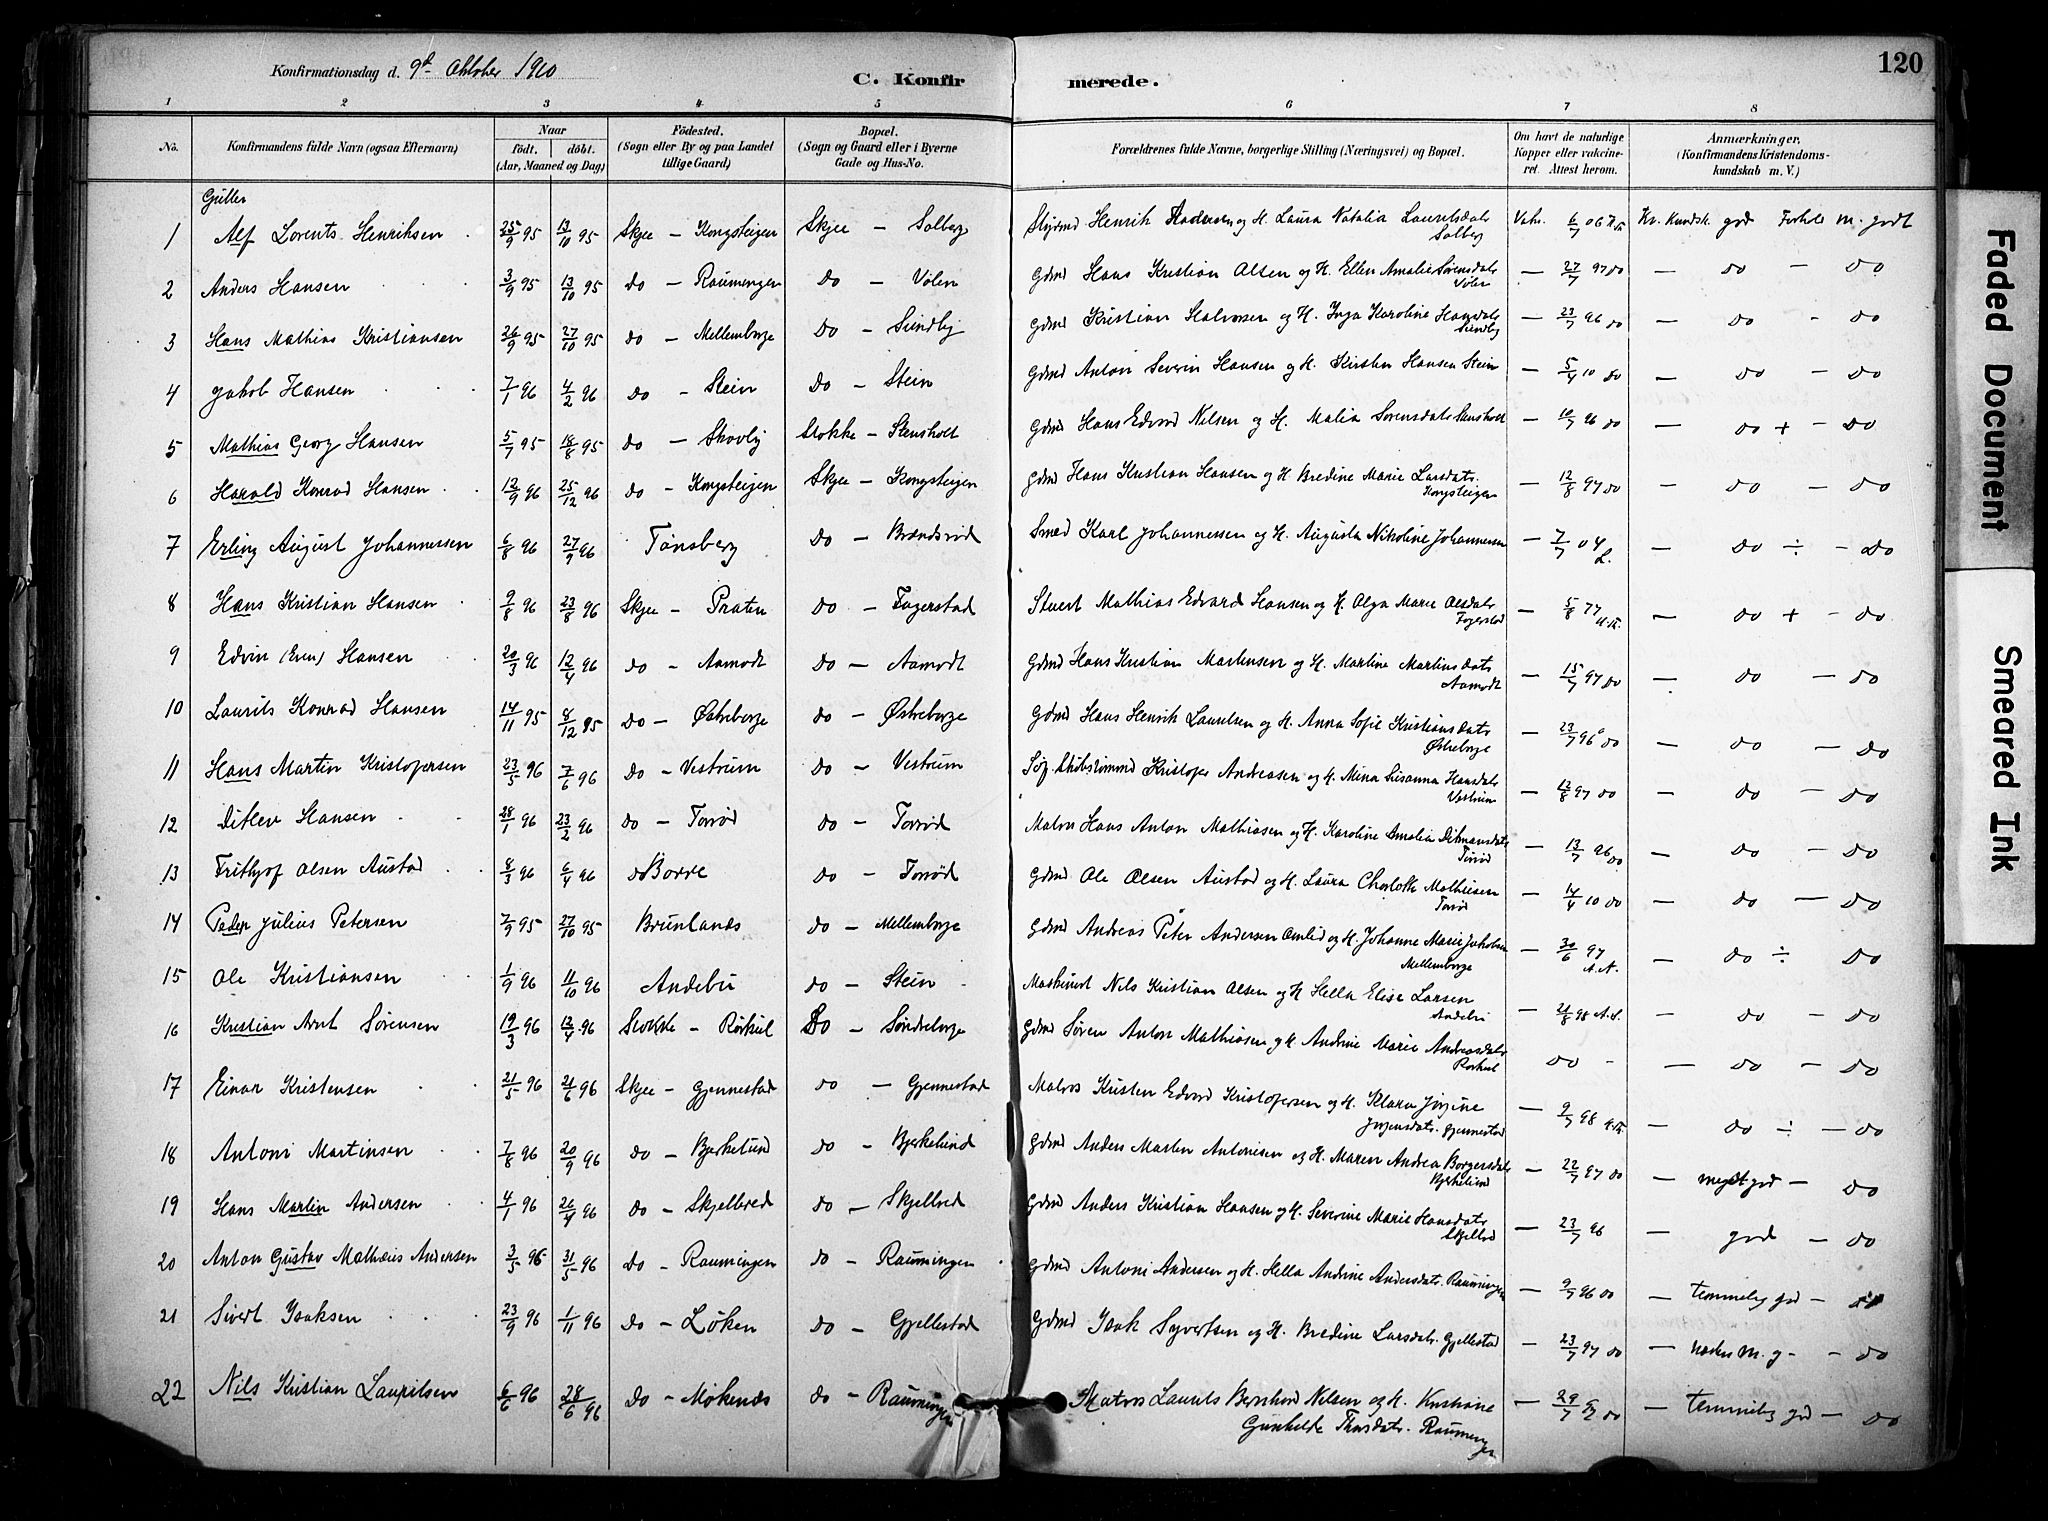 Konfirmationsdag d. 9d Oktober 1910
C. Konfirmerede.
120
1 2 3 4 5 6 7 8
No. Konfirmandens fulde Navn (ogsaa Efternavn) Naar født. døbt. (Aar, Maaned og Dag) Fødested. (Sogn eller By og paa Landet tillige Gaard) Bopæl. (Sogn og Gaard eller i Byerne Gade og Hus-No. Forældrenes fulde Navne, borgerlige Stilling (Næringsvei) og Bopæl. Om havt de naturlige Kopper eller vakcineret. Attest herom. Anmærkninger. (Konfirmandens Kristendomskundskab m. V.)
Gutter
1 Alf Lorents Henriksen 25/9 95 13/10 95 Skjee - Kongsteigen Skjee - Solberg Styrmd Henrik Andersen og H. Laura Natalia Lauritsdatr Solberg Vakc. 6/7 06 Kr. Kundsk. god Forhold m. godt
2 Anders Hansen 3/9 95 13/10 95 do - Raumingen do - Volen Gdmd Hans Kristian Olsen og H. Ellen Amalie Sørensdatr Volen - 27/7 97 do - do - do
3 Hans Mathias Kristiansen 26/9 95 27/10 95 do - Mellemborge do - Sundby Gdmd Kristian Halvorsen og H. Inga Karoline Hansdatr Sundby - 23/7 96 do - do - do
4 Jakob Hansen 7/1 96 4/2 96 do - Stein do - Stein Gdmd Anton Severin Hansen og H. Kirsten Hansen Stein - 5/4 10 do - do - do
5 Mathias Georg Hansen 5/7 95 18/8 95 do - Skovly Stokke - Stensholt Gdmd Hans Edvard Nilsen og H. Malia Sorensdatr Stensholt - 10/7 96 do - do + - do
6 Harald Konrad Hansen 12/9 96 25/12 96 do - Kongsteigen Skjee - Kongsteigen Gdmd Hans Kristian Hansen og H Bredine Marie Larsdatr. Kongsteigen - 12/8 97 do - do - do
7 Erling August Johannessen 6/8 96 27/9 96 Tønsberg do - Brændsrød Smed Karl Johannessen og H. Augusta Nikoline Johannessen - 7/7 04 L. - do ÷ - do
8 Hans Kristian Hansen 9/8 96 23/8 96 Skjee - Praten do - Fogerstad Stuert Mathias Edvard Hansen og H. Olga Marie Olsdatr Fogerstad - 5/8 - do + - do
9 Edvin (Even) Hansen 20/3 96 12/4 96 do - Aamodt do - Aamodt Gdmd Hans Kristian Martinsen og H. Martine Martinsdatr Aamodt - 15/7 97 do - do - do
10 Laurits Konrad Hansen 14/11 95 8/12 95 do - Østreborge do - Østreborge Gdmd Hans Henrik Lauritsen og H. Anna Sofie Kristiansdatr Østreborge - 23/7 96 do - do - do
11 Hans Martin Kristofersen 23/5 96 7/6 96 do - Vestrum do - Vestrum Skibstømmd Kristofer Andreasen og H. Mina Susanna Hansdatr Vestrum - 12/8 97 do - do - do
12 Ditlev Hansen 28/1 96 23/2 96 do - Torrød do - Torrød Matros Hans Anton Mathiasen og H. Karoline Amalia Ditmansdatr Torrød - 13/7 96 do - do - do
13 Frithjof Olsen Austad 8/3 96 6/4 96 Borre do - Torrød Gdmd Ole Olsen Austad og H. Laura Charlotte Mathisen Torrød - 14/4 10 do - do - do
14 Peder Julius Petersen 7/9 95 27/10 95 Brunlands do - Mellemborge Gdmd Andreas Peter Andersen Omlid og H. Johanne Marie Jakobsen Mellemborge - 30/6 97 A.N. - do ÷ do
15 Ole Kristiansen 1/9 96 11/10 96 Andebu do - Stein Maskinist Nils Kristian Olsen og H Hella Elise Larsen Andebu - 21/8 98 - do - do
16 Kristian Arnt Sørensen 19/3 96 12/4 96 Stokke - Rørkul Do - Søndreborge Gdmd Søren Anton Mathiasen og H. Andrine Marie Andreasdatr Rorkul do - - do - do
17 Einar Kristensen 21/5 96 21/6 96 Skjee - Gjennestad do - Gjennestad Matros Kristen Edvard Kristofersen og H. Klara Jørgine Jørgensdatr. Gjennestad - 9/7 98 - do ÷ - do
18 Antoni Martinsen 7/8 96 20/9 96 do - Bjerkelund do - Bjerkelund Gdmd Anders Marten Antonisen og H. Maren Andrea Borgersdatr Bjerkelund - 22/7 97 do - meget god - do
19 Hans Martin Andersen 4/1 96 26/4 96 do - Skjelbred do - Skjelbred Gdmd Anders Kristian Hansen og H. Severine Marie Hansdatr Skjelbred - 23/7 96 - god - do
20 Anton Gustav Mathæus Andersen 3/5 96 31/5 96 do - Raumingen do - Raumingen Gdmd Antoni Andersen og H. Hella Andrine Andersdatr. Raumingen - 9/7 96 do - temmelig god - do
21 Sivert Isaksen 23/9 96 1/11 96 do - Løken do - Gjellestad Gdmd Isak Syvertsen og H. Bredine Larsdatr. Gjellestad - 23/7 97 do - noder m. g - - do
22 Nils Kristian Lauritsen 6/6 96 28/6 96 do - Møkenes do - Raumingen Matros Laurits Bernhard Nilsen og H. Kristiane Gunhilde Thorsdatr. Raumingen - 29/7 do - temmelig god - do
Faded Document
Smeared Ink